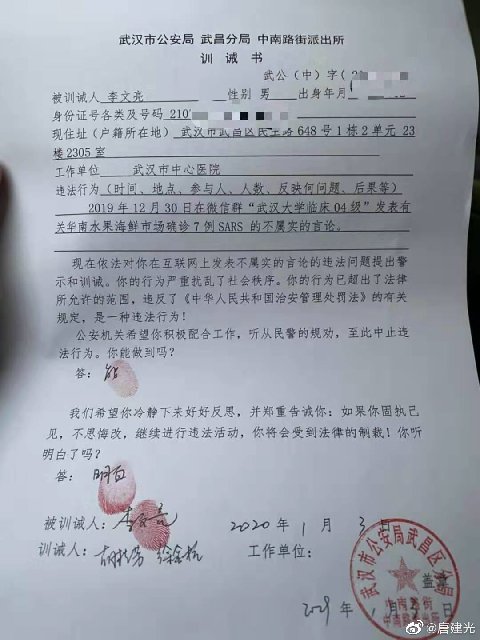 武汉市公安局 武昌分局 中南路街派出所
训 诫 书
武公（中）字（
被训诫人 李文亮 性别 男 出身年月
身份证号各类及号码 210
现住址（户籍所在地） 武汉市武昌区民主路 648 号 1 栋 2 单元 23
楼 2305 室
工作单位 武汉市中心医院
违法行为（时间、地点、参与人、人数、反映何问题、后果等）
2019 年 12 月 30 日在微信群“武汉大学临床 04 级”发表有
关华南水果海鲜市场确诊 7 例 SARS 的不属实的言论。
现在依法对你在互联网上发表不属实的言论的违法问题提出警
示和训诫。你的行为严重扰乱了社会秩序。你的行为已超出了法律
所允许的范围，违反了《中华人民共和国治安管理处罚法》的有关
规定，是一种违法行为！
公安机关希望你积极配合工作，听从民警的规劝，至此中止违
法行为。你能做到吗？
答：能
我们希望你冷静下来好好反思，并郑重告诫你：如果你固执己
见，不思悔改，继续进行违法活动，你将会受到法律的制裁！你听
明白了吗？
答：明白
被训诫人：李文亮 2020 年 1 月 3 日
训诫人： 工作单位：
武汉市公安局武昌区分局
中南路街
盖章
年 月 日
@唐建光